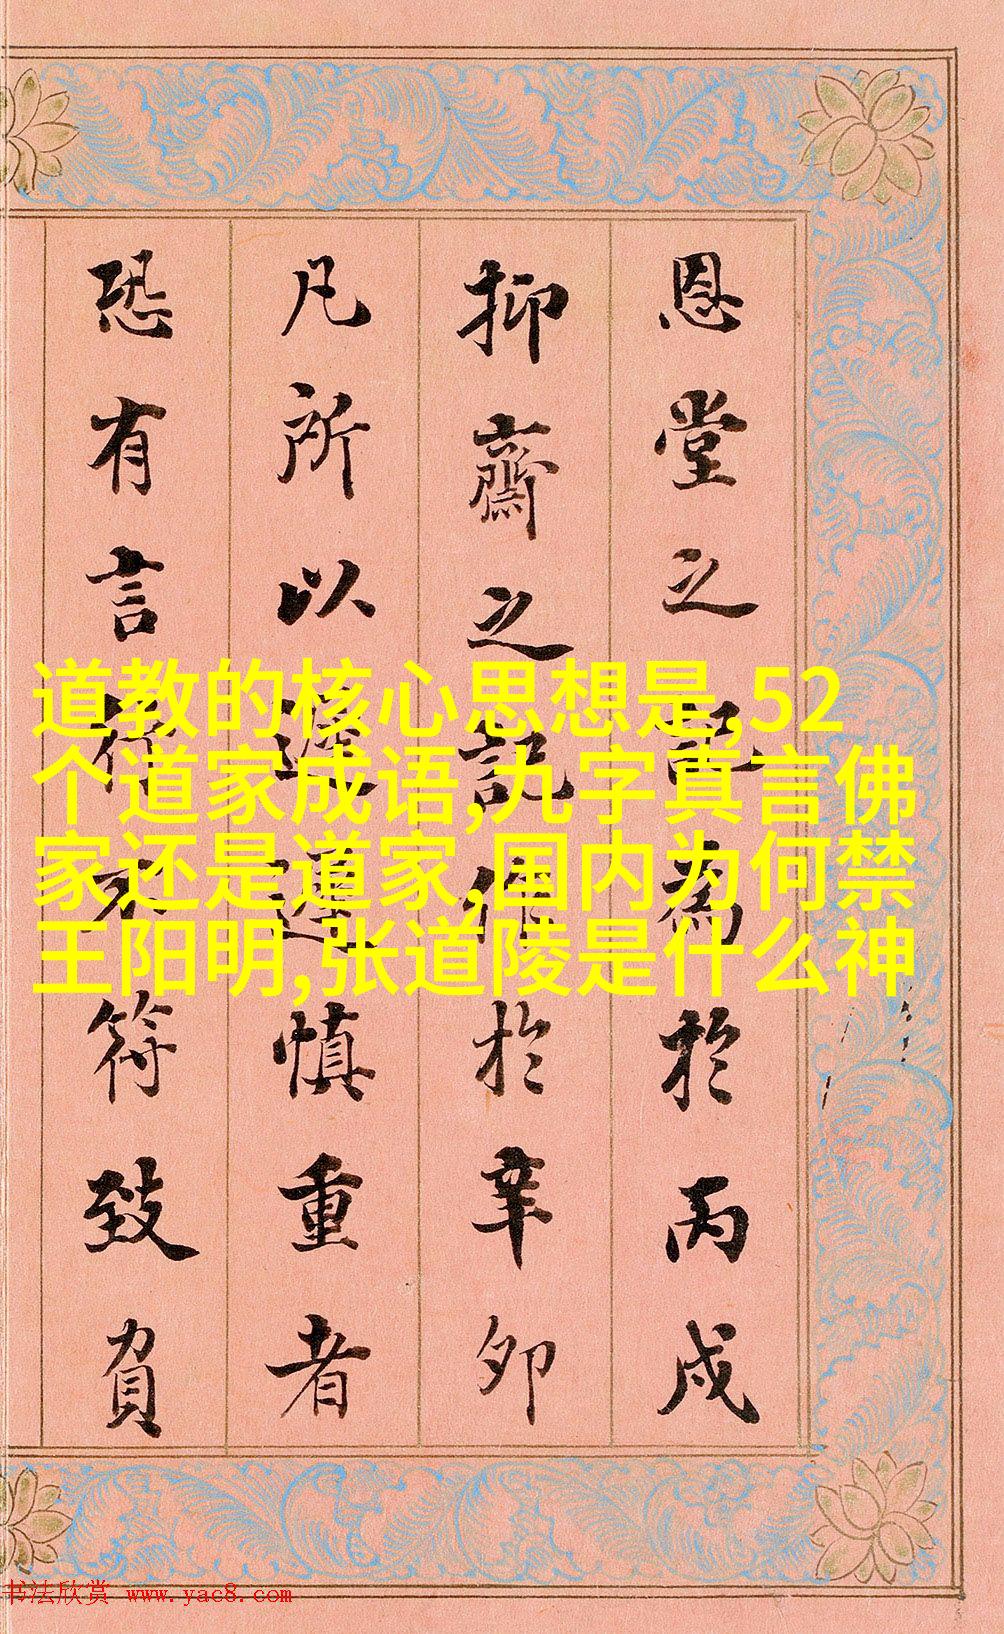 恩堂之記為於丙戌
抑齋之記作於辛卯
凡所以遲遲慎重者
恐有言行不符致負
道教的核心思想是,52
个道家成语,九字真言佛
家还是道家,国内为何禁
王阳明,张道陵是什么神
书法欣赏 www.yac8.com